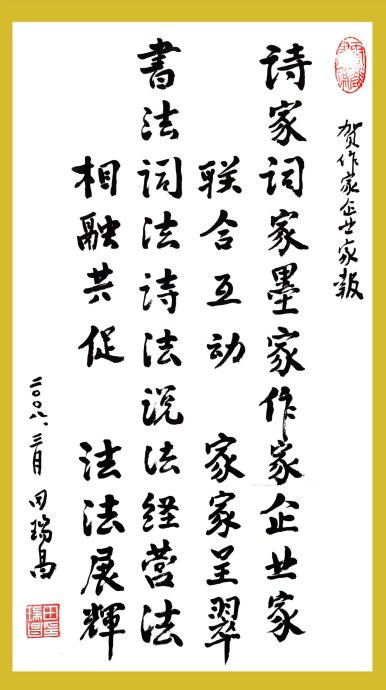 贺作家企业家報
诗家词家墨家作家企业家
联合互动 家家呈翠
書法词法诗法说法经营法
相融共促 法法展輝
二〇〇八.三月 田瑞昌